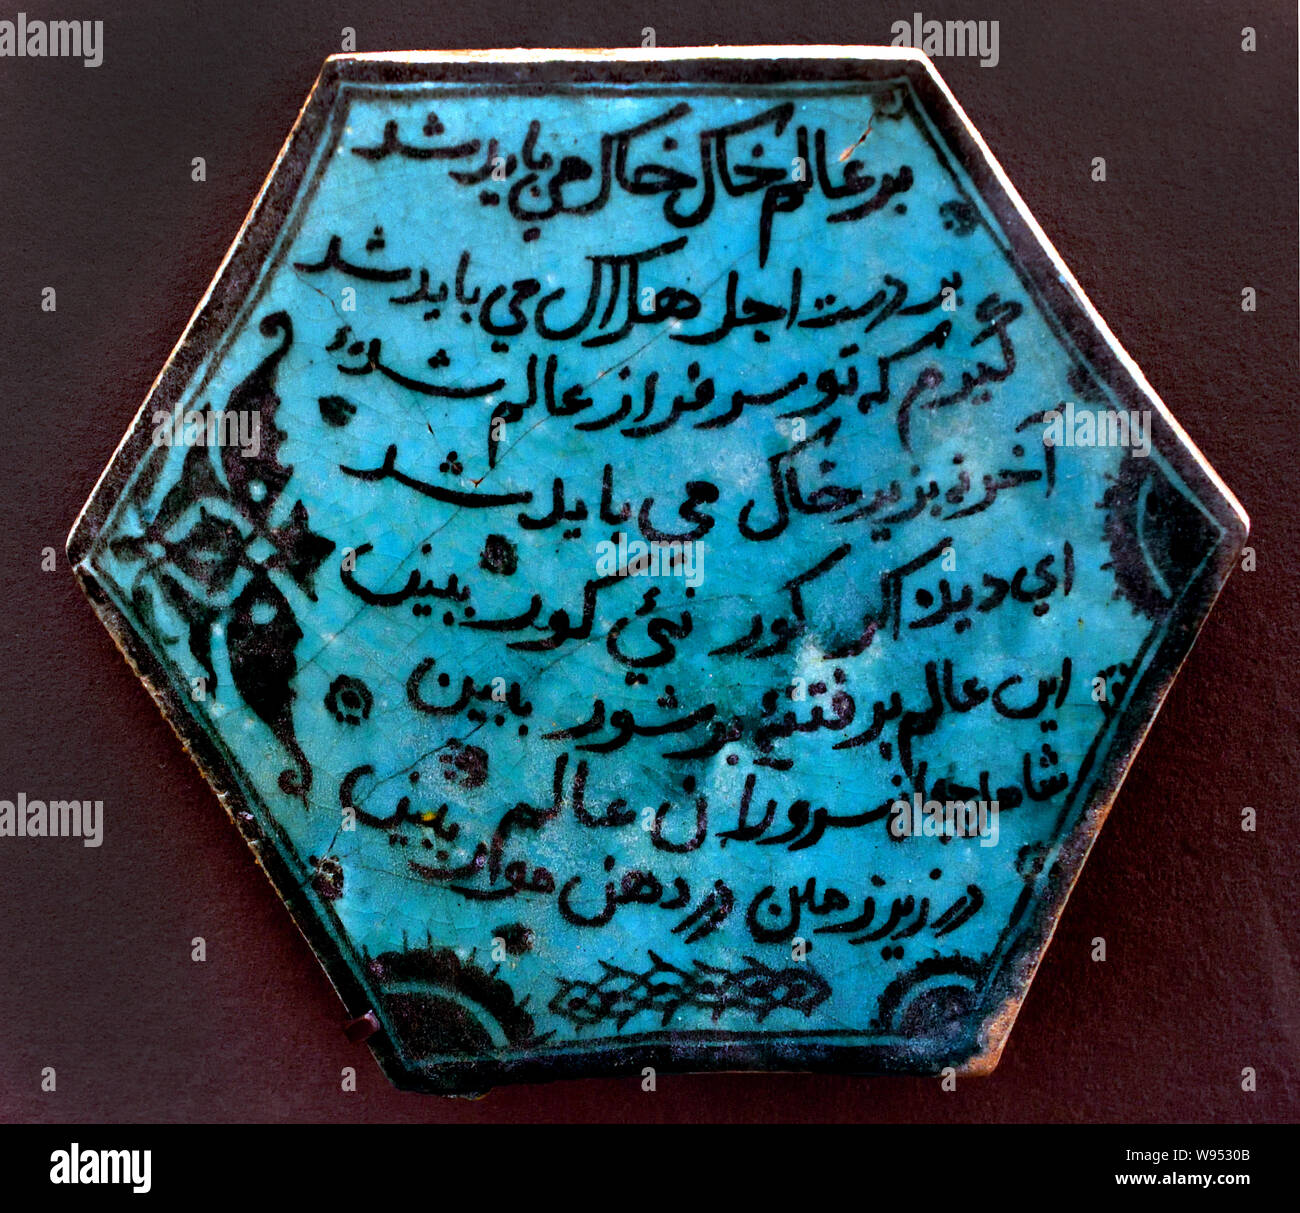 در عالم خاک خاک می باید شد
در دست اجل هلاک می باید شد
گیرم که تو سرفراز عالم شدهٔ
آخر نه بزیر خاک می باید شد
ای دیده اگر کور نئي کور ببین
این عالم پر فتنهٔ پر شور ببین
شاهان سروران عالم
در زیر زمین در دهن موران ببین
alamy
alamy
Image ID: W9530B
www.alamy.com